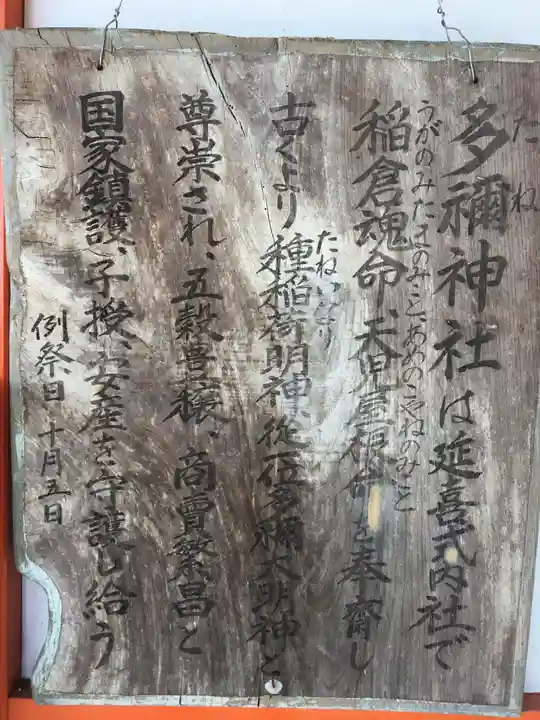 たね
多禰神社は延喜式内社で
うがのみたまのみこと、あめのこやねのみこと
稲倉魂命、天児屋根命を奉齋し
古くより種稲荷明神、従一位多禰大明神と
たねいなり
尊崇され、五穀豊穣、商賣繁昌と
国家鎮護、子授、安産を守護し給う
例祭日 十月五日